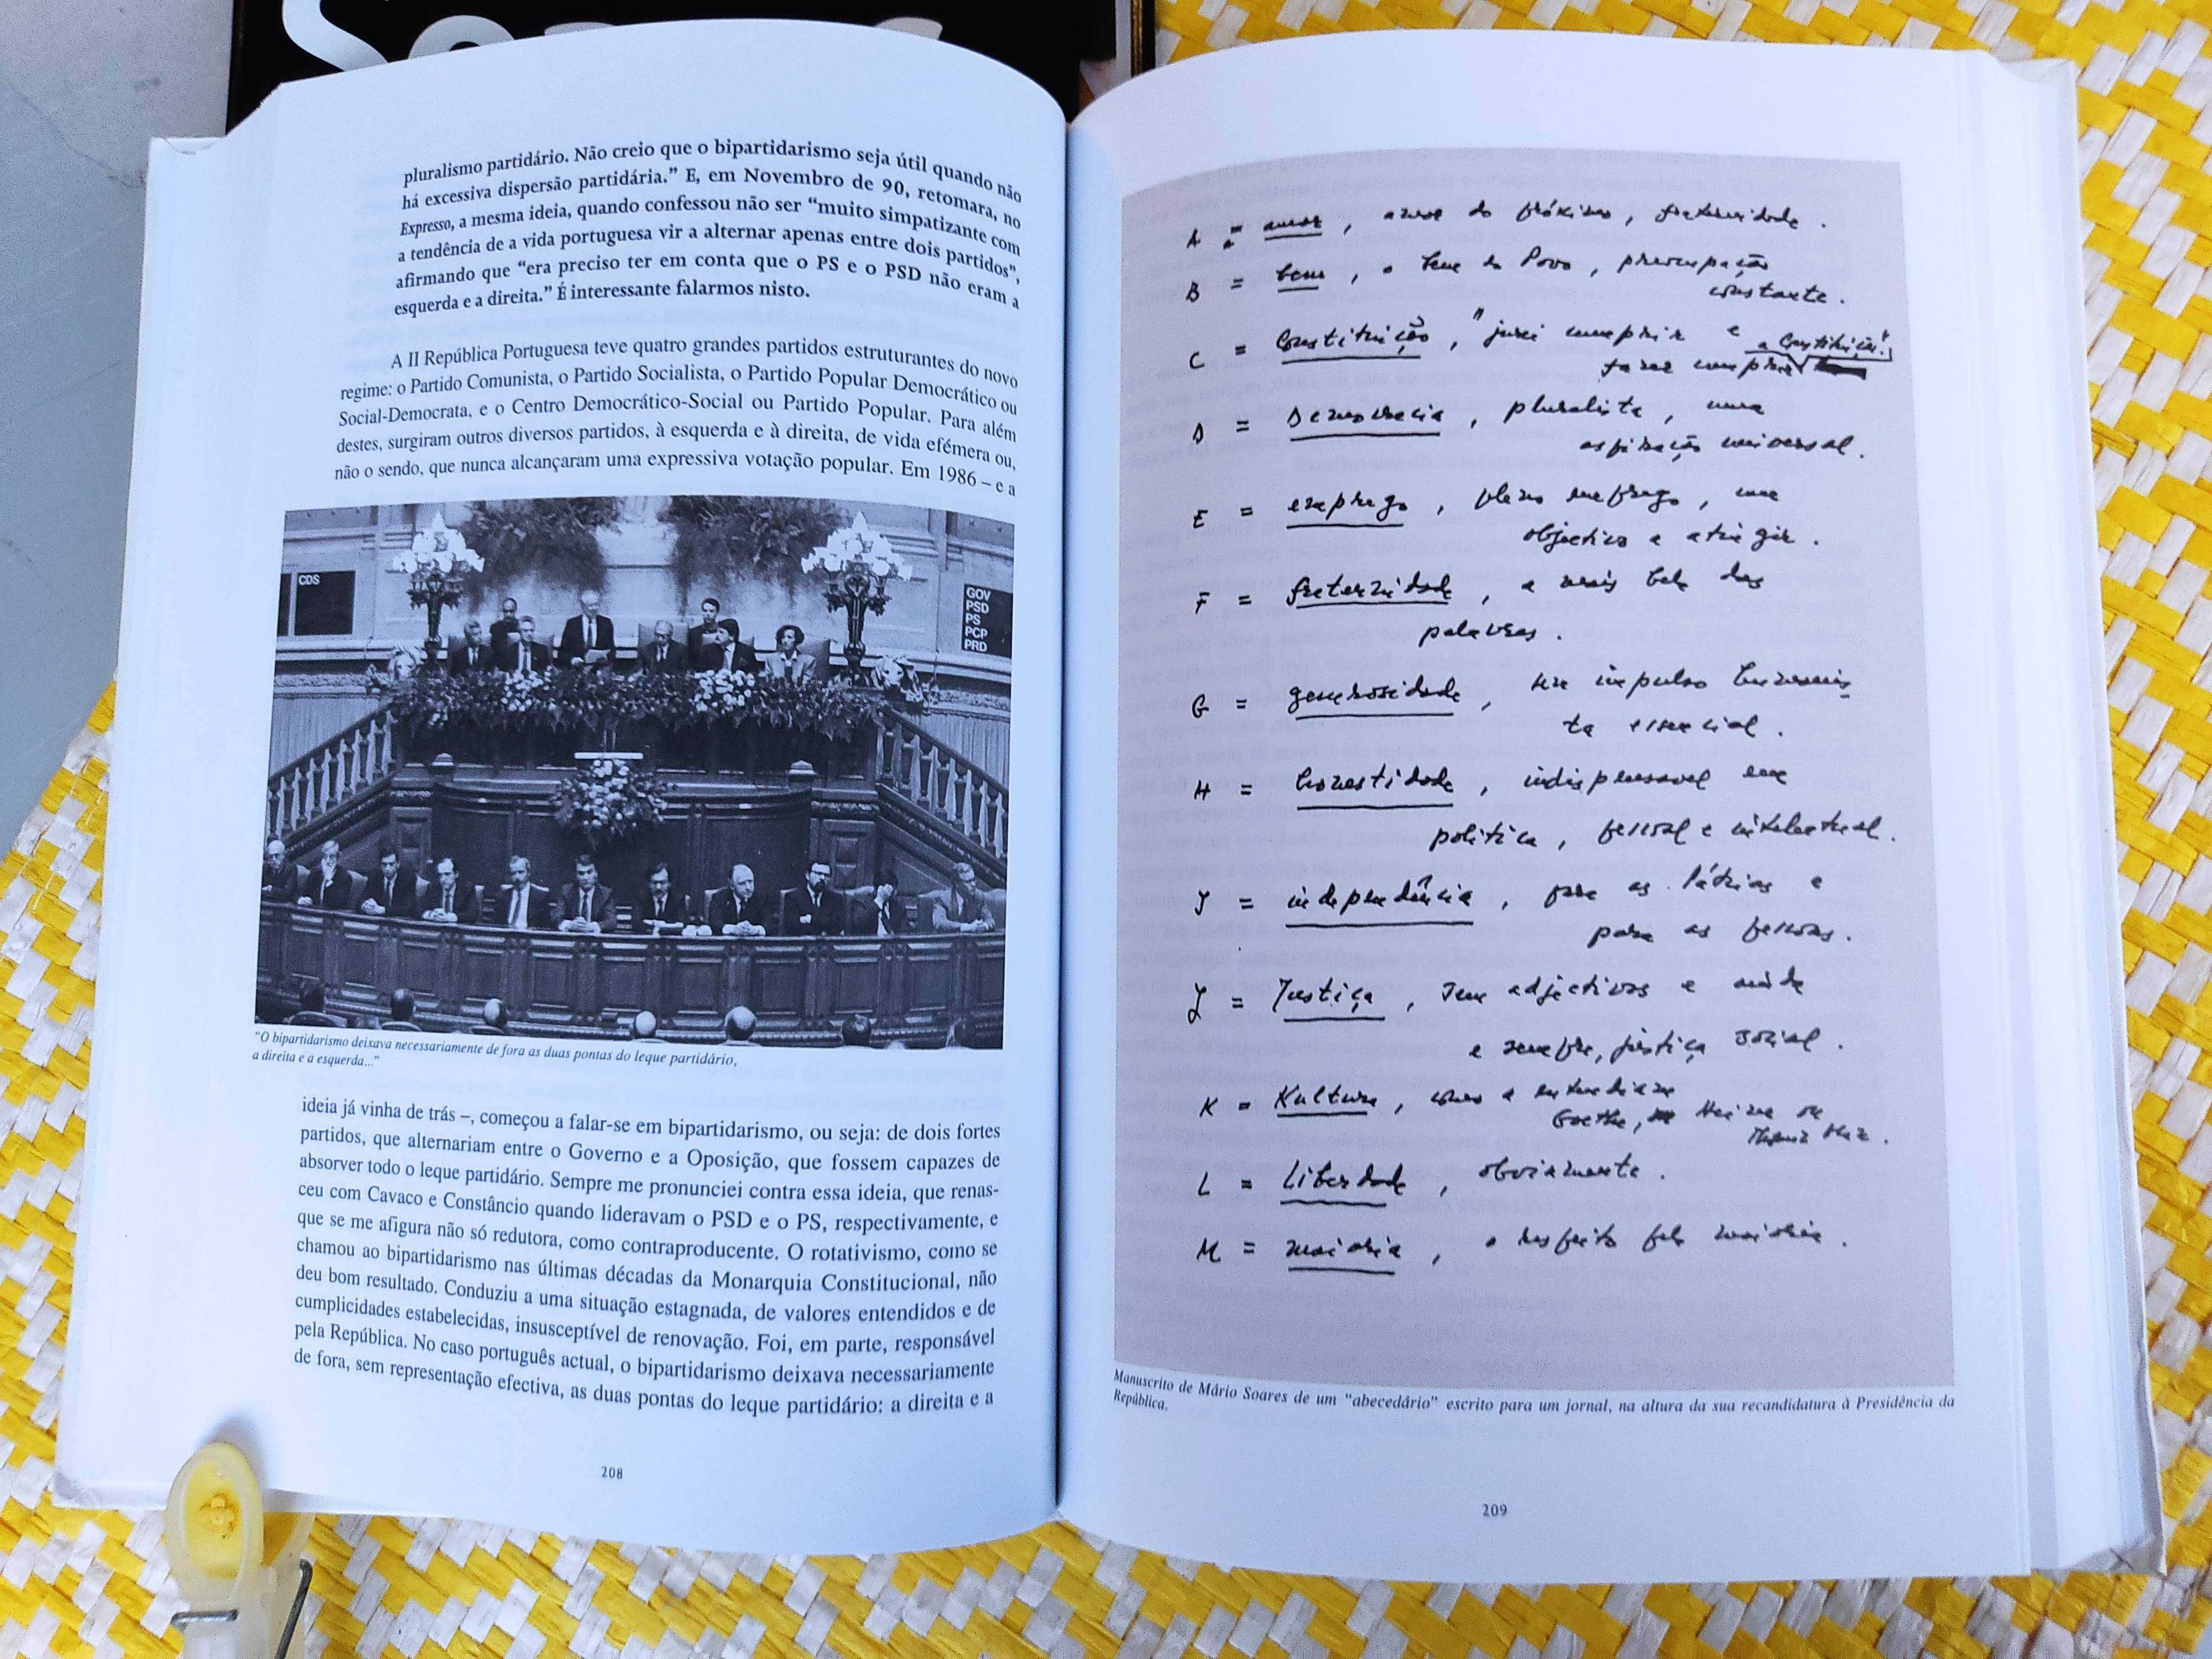 pluralismo partidário. Não creio que o bipartidarismo seja útil quando não
há excessiva dispersão partidária.” E, em Novembro de 90, retomara, no
Expresso, a mesma ideia, quando confessou não ser “muito simpatizante com
a tendência de a vida portuguesa vir a alternar apenas entre dois partidos”,
afirmando que “era preciso ter em conta que o PS e o PSD não eram a
esquerda e a direita.” É interessante falarmos nisto.
A II República Portuguesa teve quatro grandes partidos estruturantes do novo
regime: o Partido Comunista, o Partido Socialista, o Partido Popular Democrático ou
Social-Democrata, e o Centro Democrático-Social ou Partido Popular. Para além
destes, surgiram outros diversos partidos, à esquerda e à direita, de vida efémera ou,
não o sendo, que nunca alcançaram uma expressiva votação popular. Em 1986 – e a
CDS
GOV
PSD
PS
PCP
PRD
“O bipartidarismo deixava necessariamente de fora as duas pontas do leque partidário,
a direita e a esquerda...”
ideia já vinha de trás –, começou a falar-se em bipartidarismo, ou seja: de dois fortes
partidos, que alternariam entre o Governo e a Oposição, que fossem capazes de
absorver todo o leque partidário. Sempre me pronunciei contra essa ideia, que renas-
ceu com Cavaco e Constâncio quando lideravam o PSD e o PS, respectivamente, e
que se me afigura não só redutora, como contraproducente. O rotativismo, como se
chamou ao bipartidarismo nas últimas décadas da Monarquia Constitucional, não
deu bom resultado. Conduziu a uma situação estagnada, de valores entendidos e de
cumplicidades estabelecidas, insusceptível de renovação. Foi, em parte, responsável
pela República. No caso português actual, o bipartidarismo deixava necessariamente
de fora, sem representação efectiva, as duas pontas do leque partidário: a direita e a
208
A = amor, amor do próximo, fraternidade.
B = bem, o bem do Povo, preocupação
constante.
C = Constituição, "jurei cumprir e
fazer cumprir a Constituição".
D = Democracia, pluralista, uma
aspiração universal.
E = emprego, pleno emprego, um
objectivo a atingir.
F = fraternidade, a mais bela das
palavras.
G = generosidade, um impulso humanis-
ta essencial.
H = honestidade, indispensavel em
politica, pessoal e intelectual.
I = independência, para as Pátrias e
para as pessoas.
J = Justiça, sem adjectivos e ainda
e sempre, justiça social.
K = Kultura, como a entendiam
Goethe, Heine ou
Thomas Mann.
L = Liberdade, obviamente.
M = maioria, o respeito pela maioria.
Manuscrito de Mário Soares de um "abecedário" escrito para um jornal, na altura da sua recandidatura à Presidência da
República.
209